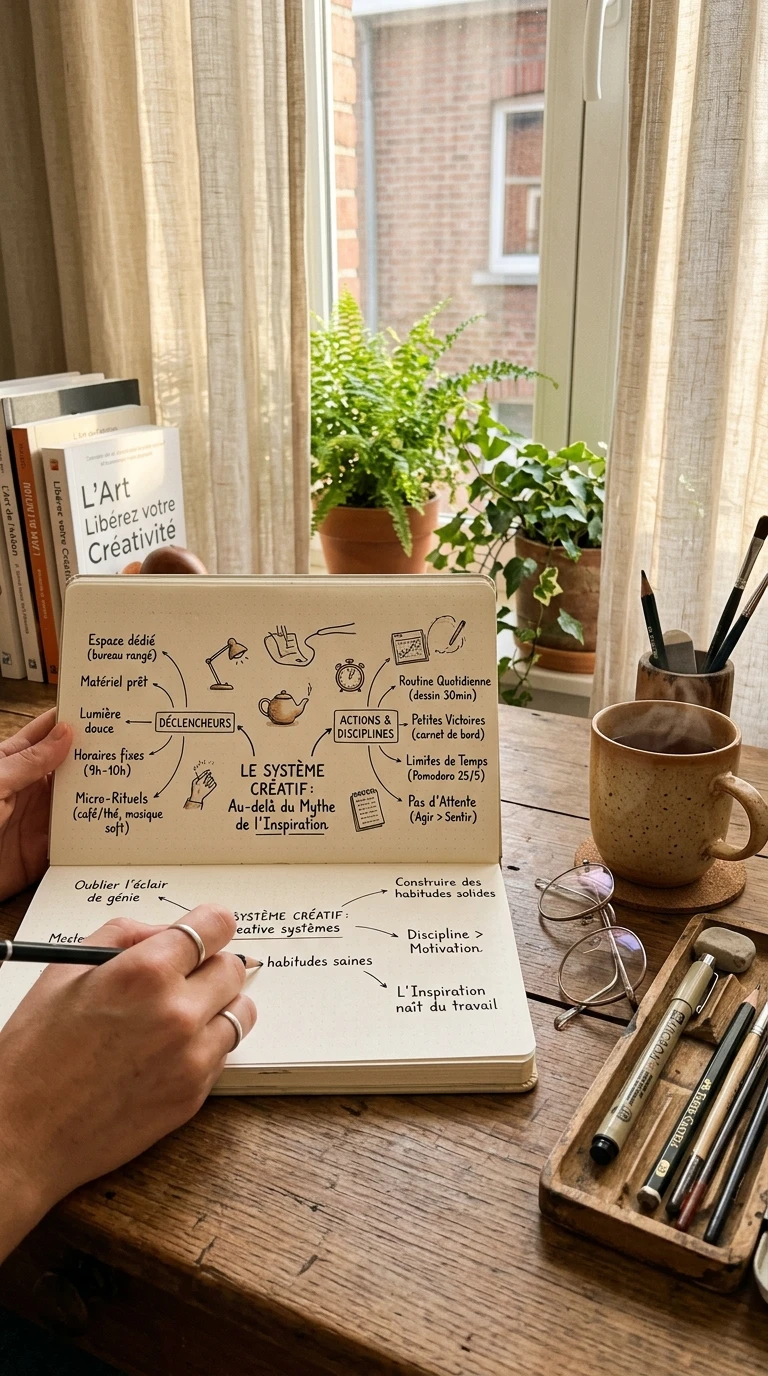 L'Art
Libérez votre
Créativité
Libérez votre
Espace dédié
(bureau rangé)
Matériel prêt
Lumière
douce
Horaires fixes
(9h-10h)
Micro-Rituels
(café/thé, mosique
soft)
DÉCLENCHEURS
LE SYSTÈME
CRÉATIF :
Au-delà du Mythe
de l'Inspiration
ACTIONS &
DISCIPLINES
Routine Quotidienne
(dessin 30min)
Petites Victoires
(carnet de bord)
Limites de Temps
(Pomodoro 25/5)
Pas d'Attente
(Agir > Sentir)
Oublier l'éclair
de génie
SYSTÈME CRÉATIF :
eative systèmes
habitudes saines
Construire des
habitudes solides
Discipline >
Motivation.
L'Inspiration
naît du travail